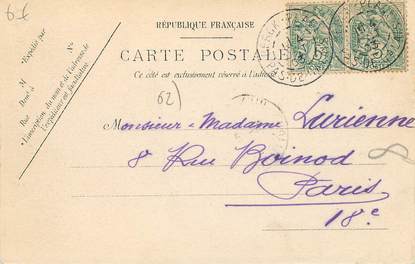 6€
RÉPUBLIQUE FRANÇAISE
CARTE POSTALE
Ce côté est exclusivement réservé à l'adresse
Expédié par
M
Demt à
Rue
N°
L'inscription du nom et de l'adresse de
l'expéditeur est facultative.
62)
BERCK
PAS-DE
Monsieur-Madame Lurienne
8 Rue Boinod
Paris
18e
8